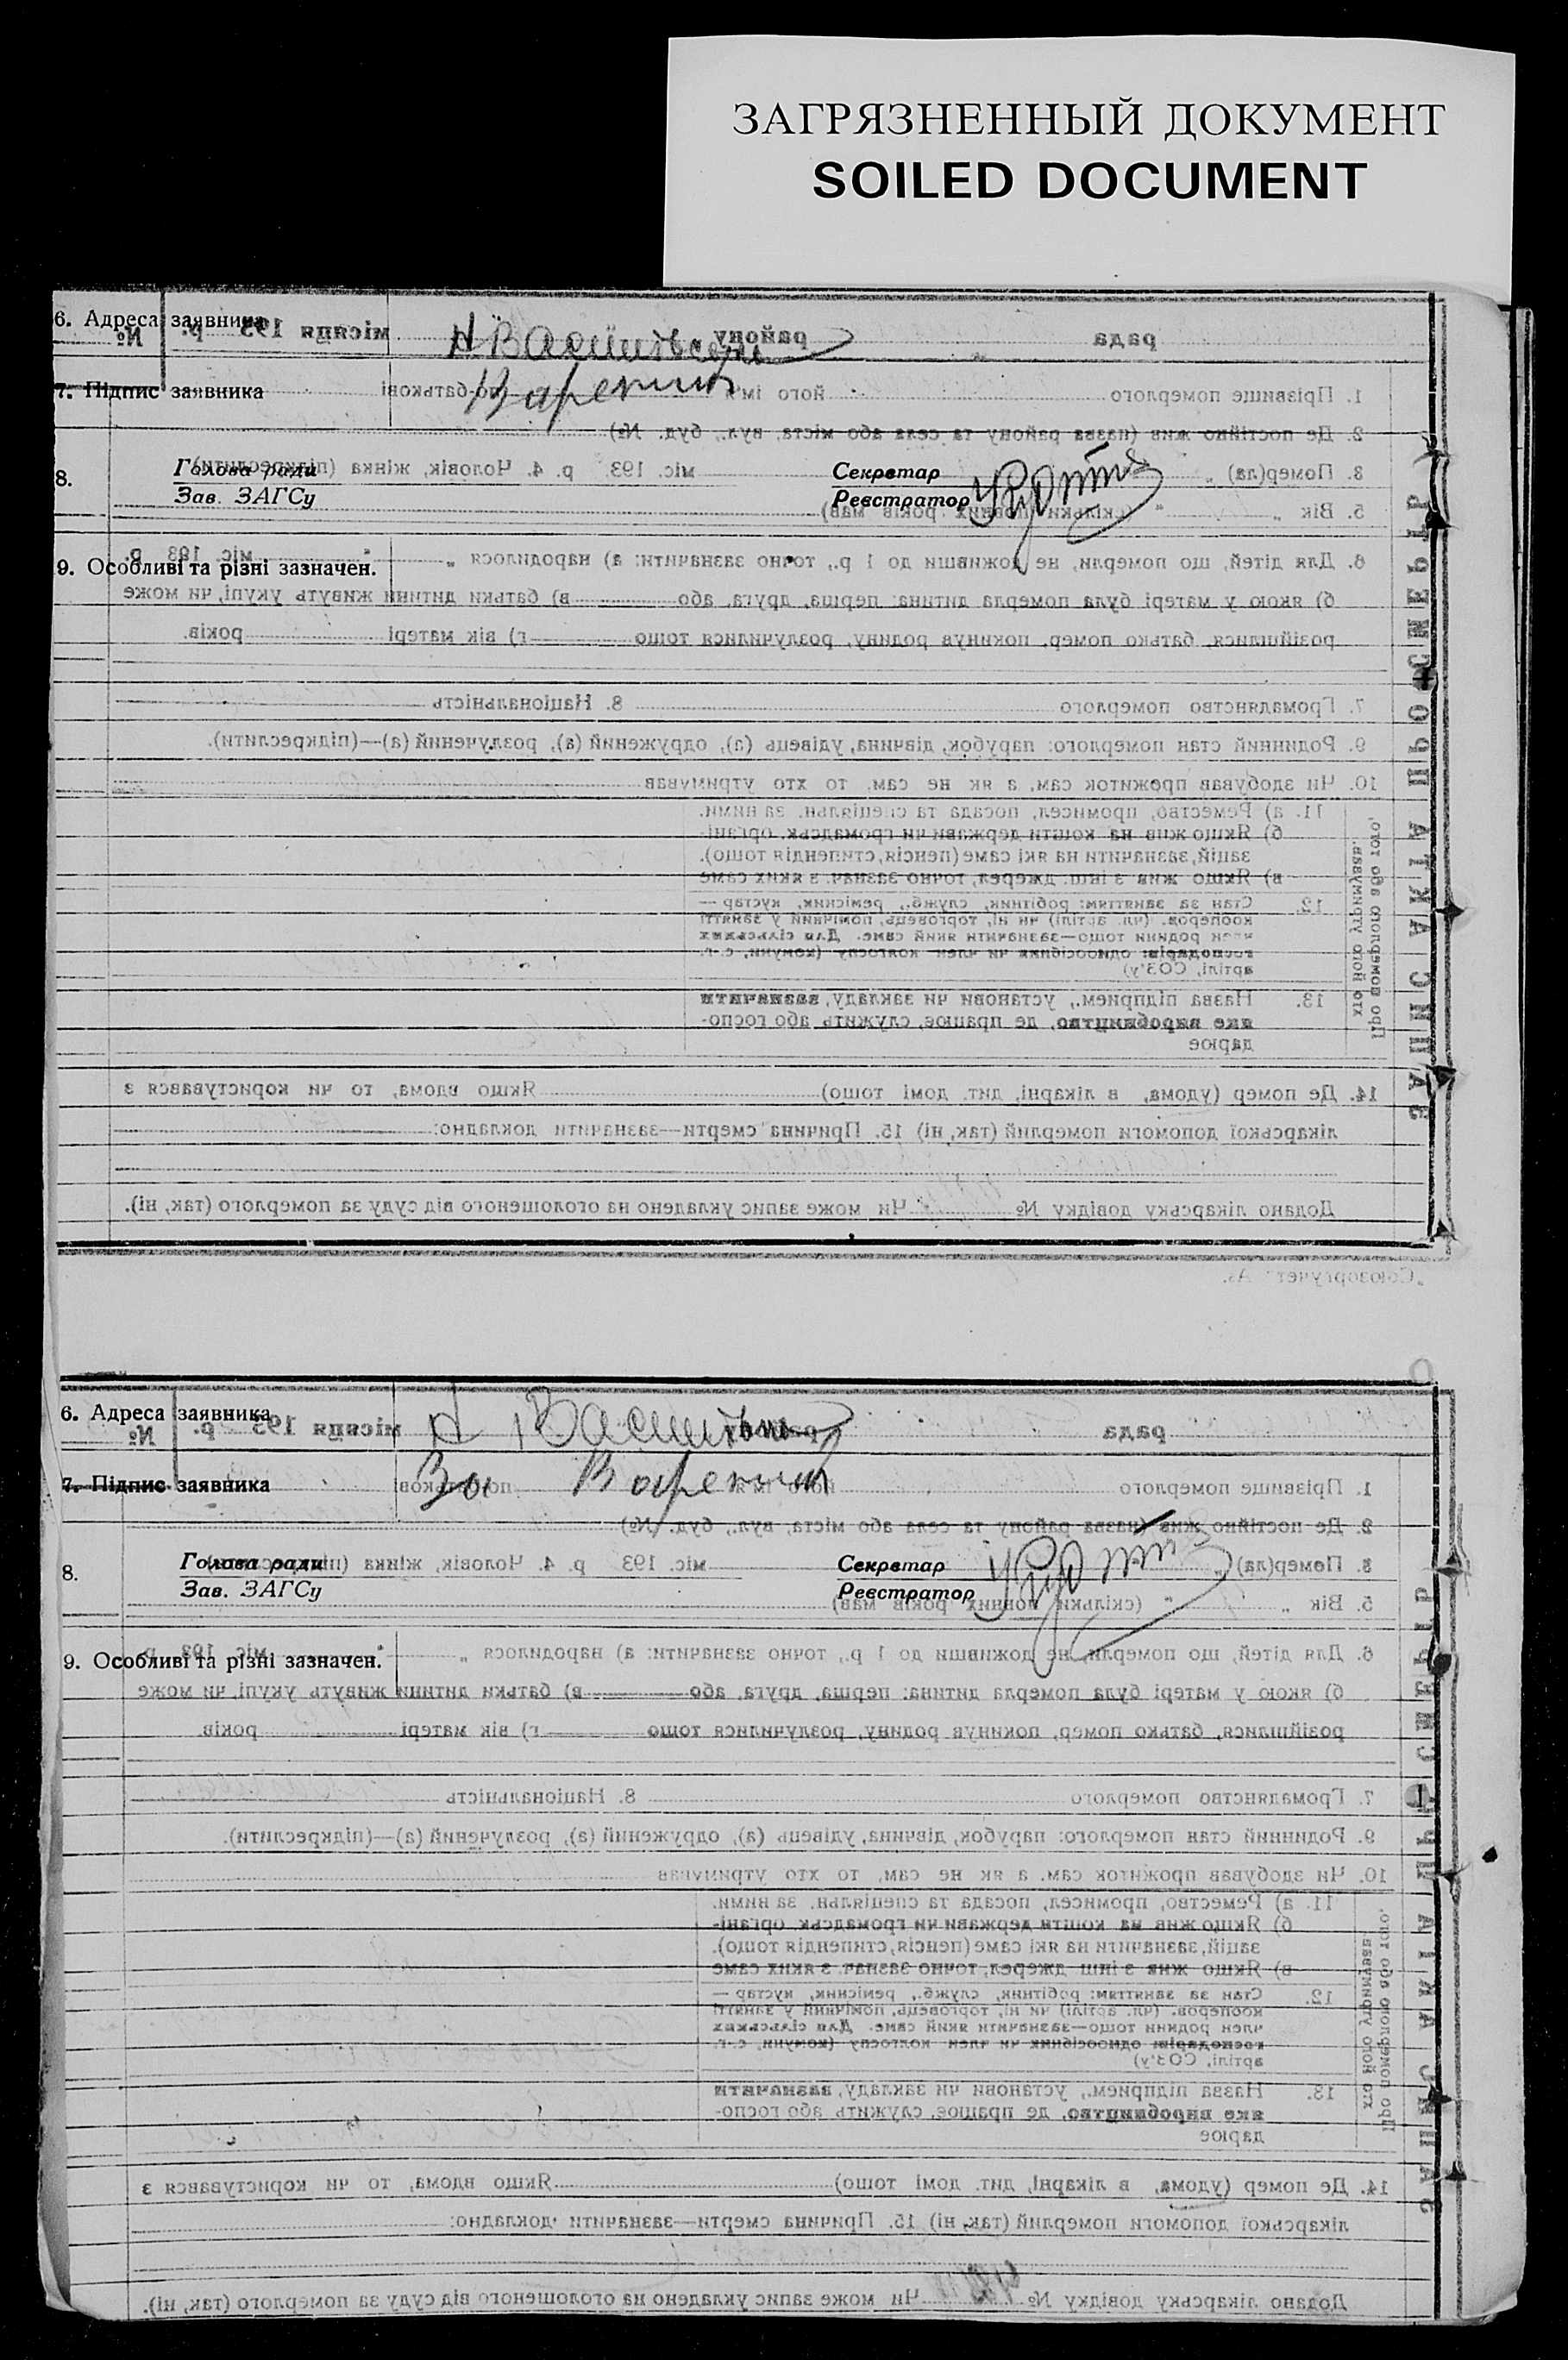 ЗАГРЯЗНЕННЫЙ ДОКУМЕНТ
SOILED DOCUMENT
6. Адреса заявника
№ р. 193 місяця району рада
7. Підпис заявника
1. Прізвище померлого його ім'я по-батькові
2. Де постійно жив (назва району та села або міста, вул., буд. №)
8. Голова ради Секретар
Зав. ЗАГСу Реєстратор
3. Помер(ла) „ міс. 193 р. 4. Чоловік, жінка (підкреслити)
5. Вік „ “ (скільки повних років мав)
9. Особливі та різні зазначен.
6. Для дітей, що померли, не доживши до 1 р., точно зазначити: а) народилося „ “ міс. 193 р.
б) якою у матері була померла дитина: перша, друга, або в) батьки дитини живуть укупі, чи може
розійшлися, батько помер, покинув родину, розлучилися тощо г) вік матері років.
7. Громадянство померлого 8. Національність
9. Родинний стан померлого: парубок, дівчина, удівець (а), одружений (а), розлучений (а)—(підкреслити).
10. Чи здобував прожиток сам, а як не сам, то хто утримував
Про померлого або того,
хто його утримував.
11. а) Ремество, промисел, посада та спеціяльн. за ними.
б) Якщо жив на кошти держави чи громадськ. органі-
зацій, зазначити на які саме (пенсія, стипендія тощо).
в) Якщо жив з інш. джерел, точно зазнач. з яких саме
12. Стан за заняттям: робітник, служб., ремісник, кустар —
кооперов. (чл. артілі) чи ні, торговець, помічний у занятті
член родини тощо—зазначити який саме. Для сільських
господарів: одноосібник чи член колгоспу (комуни, с.-г.
артілі, СОЗ'у)
13. Назва підприєм., установи чи закладу, зазначити
яке виробництво, де працює, служить або госпо-
дарює
14. Де помер (удома, в лікарні, дит. домі тощо) Якщо вдома, то чи користувався з
лікарської допомоги померлий (так, ні) 15. Причина смерти—зазначити докладно:
Додано лікарську довідку № Чи може запис укладено на оголошеного від суду за померлого (так, ні).
ЗАПИС АКТА ПРО СМЕРТЬ
„Союзоргучет“
6. Адреса заявника
№ р. 193 місяця району рада
7. Підпис заявника
1. Прізвище померлого його ім'я по-батькові
2. Де постійно жив (назва району та села або міста, вул., буд. №)
8. Голова ради Секретар
Зав. ЗАГСу Реєстратор
3. Помер(ла) „ міс. 193 р. 4. Чоловік, жінка (підкреслити)
5. Вік „ “ (скільки повних років мав)
9. Особливі та різні зазначен.
6. Для дітей, що померли, не доживши до 1 р., точно зазначити: а) народилося „ “ міс. 193 р.
б) якою у матері була померла дитина: перша, друга, або в) батьки дитини живуть укупі, чи може
розійшлися, батько помер, покинув родину, розлучилися тощо г) вік матері років
7. Громадянство померлого 8. Національність
9. Родинний стан померлого: парубок, дівчина, удівець (а), одружений (а), розлучений (а)—(підкреслити).
10. Чи здобував прожиток сам, а як не сам, то хто утримував
Про померлого або того,
хто його утримував
11. а) Ремество, промисел, посада та спеціяльн. за ними.
б) Якщо жив на кошти держави чи громадськ. органі-
зацій, зазначити на які саме (пенсія, стипендія тощо).
в) Якщо жив з інш джерел, точно зазнач. з яких саме
12. Стан за заняттям: робітник, служб., ремісник, кустар —
кооперов. (чл. артілі) чи ні, торговець, помічний у занятті
член родини тощо—зазначити який саме. Для сільських
господарів: одноосібник чи член колгоспу (комуни, с.-г.
артілі, СОЗ'у)
13. Назва підприєм., установи чи закладу, зазначити
яке виробництво, де працює, служить або госпо-
дарює
14. Де помер (удома, в лікарні, дит. домі тощо) Якщо вдома, то чи користувався з
лікарської допомоги померлий (так, ні) 15. Причина смерти—зазначити докладно:
Додано лікарську довідку № Чи може запис укладено на оголошеного від суду за померлого (так, ні).
ЗАПИС АКТА ПРО СМЕРТЬ